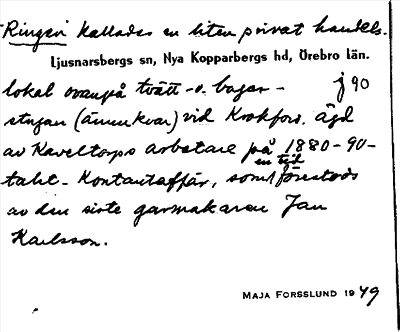 Ringen kallades en liten privat handels-
Ljusnarsbergs sn, Nya Kopparbergs hd, Örebro län.
lokal ovanpå tvätt- o. bagar- j 90
stugan (ännu kvar) vid Krokfors. ägd
av Kaveltorps arbetare på 1880-90-
en tid
talet. Kontantaffär, som förestods
av den siste garmakaren Jan
Karlsson.
MAJA FORSSLUND 1949